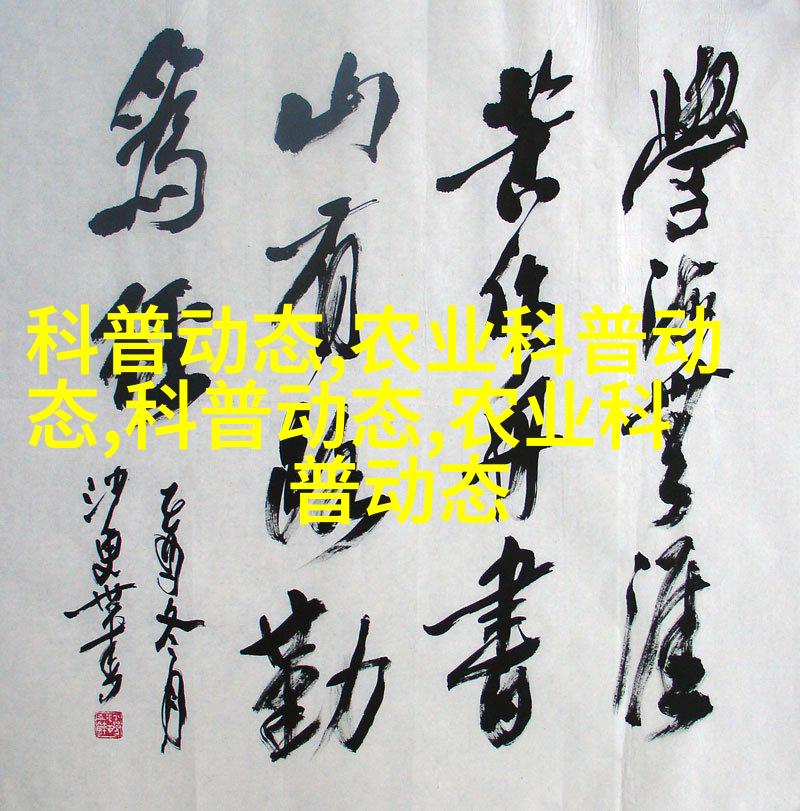 學海無涯
苦作舟書
山有路勤
為徑
乙酉冬月
科普动态,农业科普动
态,科普动态,农业科
普动态